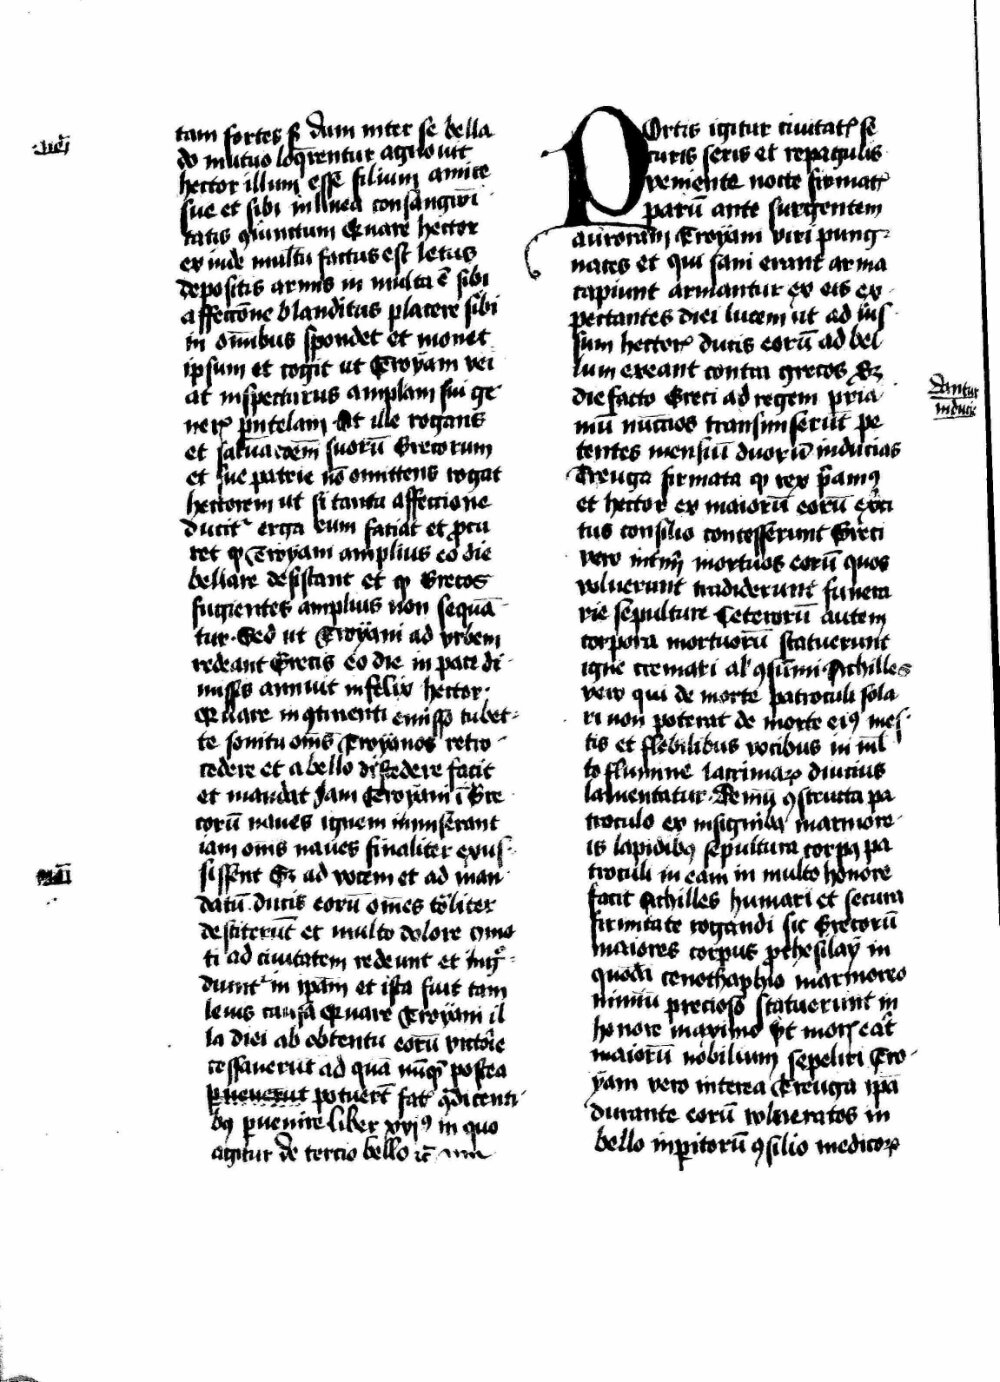 tam fortes sꝫ dum inter se bella
do mutuo loq̄rentur agnouit
hector illum esse filium amite
sue et sibi in linea consangwī
tatis ꝯiunctum Quare hector
ex inde multū factus est letus
depositis armis in multa ē sibi
affectiōne blanditus placere sibi
in om̄ibus spondet et monet
ipsum et cogit ut Troyam vei
at inspecturus amplam sui ge
nerꝭ pn̄telam At ille rogans
et saluacōem suorū Grecorum
et sue patrie nō omittens rogat
hectorem ut si tanta affectione
ducitᷣ erga eum faciat et ꝓcu
ret ꝙ Troyani amplius eo die
bellare desistant et ꝙ Grecos
fugientes amplius non sequā
tur · Sed ut Troyani ad vrbem
redeant Grecis eo die in pace di
missis annuit infelix hector ·
Quare in ꝯtinenti emisso tubet
te sonitu om̄s Troyanos retro
cedere et a bello discedere facit
et mandat Jam Troyani ī Gre
corū naues ignem inmiserant
iam om̄s naues finaliter exus
sissent Sꝫ ad vocem et ad man
datū ducis eorū om̄es tōliter
destiterūt et multo dolore ꝯmo
ti ad ciuitatem redeunt et
in ip̄am et ista fuit tam
leuis causa Quare Troyani il
la diei ab obtentu eorū victōie
cessauerūt ad quā nūqᷓ postea
puenerūt potuerūt fatꝭ ꝯdicenti
bꝫ ꝑuenire liber xvjꝰ in quo
agitur de tercio bello
Portis igitur ciuitatꝭ se
curis seris et repagulis
veniente nocte firmatꝭ
parū ante surgentem
auroram Troyani viri pung
nates et qui sani erant arma
capiunt armantur ex eis ex
pectantes diei lucem ut ad ius
sum hectorꝭ ducis eorū ad bel
lum exeant contra grecos Sꝫ
die facto Greci ad regem pria
mū nuncios transmiserūt pe
tentes mensiū duorū inducias
Treuga firmata ꝙ rex p̄amꝰ
et hector ex maiorū eorū ex̄ci
tus consilio concesserunt Greci
vero int̄im mortuos eorū quos
voluerunt tradiderunt funera
rie sepulture Ceterorū autem
corpora mortuorū statuerunt
igne cremari al' ꝯsūmi · Achilles
vero qui de morte patrocli sola
ri non poterat de morte eiꝰ mes
tis et flebilibus vocibus in ml̄
to flumine lacrimaꝝ diucius
lamentatur · Demū ꝯstructa pa
troculo ex insignibꝫ marmore
is lapidibꝫ sepultura corpꝫ pa
trocli in eam in multo honore
facit Achilles humari et secura
firmitate rogandi sic Grecorū
maiores corpus ꝓthesilay in
quodā cenothaphio marmoreo
nimiū precioso statuerunt in
honore maximo
maiorū nobilium sepeliri Tro
yani vero interea Treuga ipa
durante eorū vulneratos in
bello inpitorū ꝯsilio medicoꝝ
Dantur
inducie